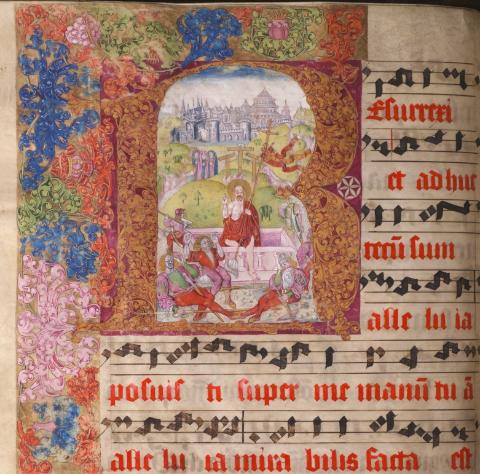 Resurrexi
et adhuc
tecū sum
alle lu ia
posuis ti super me manū tu ā
alle lu ia mira bilis facta est